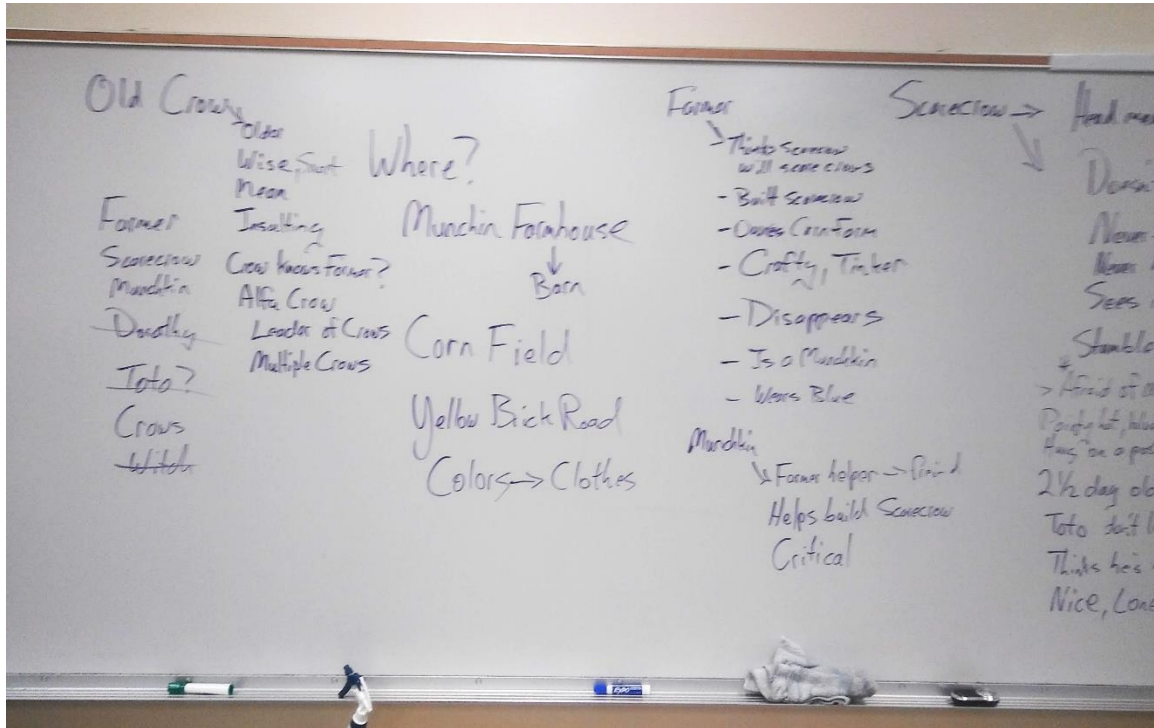 Old Crow
Older
Wise, Smart
Mean
Insulting
Crow knows Farmer?
Alfa Crow
Leader of Crows
Multiple Crows
Farmer
Scarecrow
Munchkin
Dorothy
Toto?
Crows
Witch
Where?
Munchin Farmhouse
Barn
Corn Field
Yellow Brick Road
Colors → Clothes
Farmer
- Thinks scarecrow
will scare crows
- Built scarecrow
- Owns Corn Farm
- Crafty, Tinker
- Disappears
- Is a Munchkin
- Wears Blue
Munchkin
Farmer helper → Friend
Helps build Scarecrow
Critical
Scarecrow →
Head
Never
Never
Sees
> Afraid of
Pointy hat,
Hung on a
2½ day old
Toto don't
Thinks he's
Nice,
EXPO